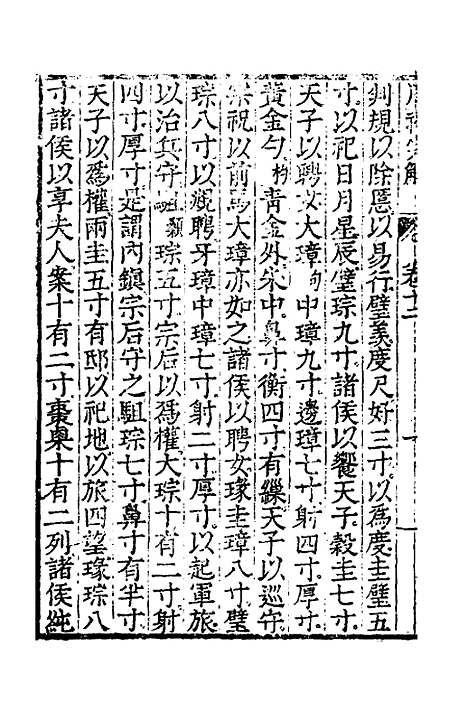 卷十二
判規以除慝以易行璧羨度尺好三寸以爲度圭璧五
寸以祀日月星辰璧琮九寸諸侯以饗天子榖圭七寸
天子以聘女大璋中璋九寸邊璋七寸射四寸厚寸
黃金勺靑金外朱中鼻寸衡四寸有繅天子以巡守
宗祝以前馬大璋亦如之諸侯以聘女瑑圭璋八寸璧
琮八寸以覜聘牙璋中璋七寸射二寸厚寸以起軍旅
以治兵守駔琮五寸宗后以爲權大琮十有二寸射
四寸厚寸是謂內鎮宗后守之駔琮七寸鼻寸有半寸
天子以爲權兩圭五寸有邸以祀地以旅四望瑑琮八
寸諸侯以享夫人案十有二寸棗㮚十有二列諸侯純